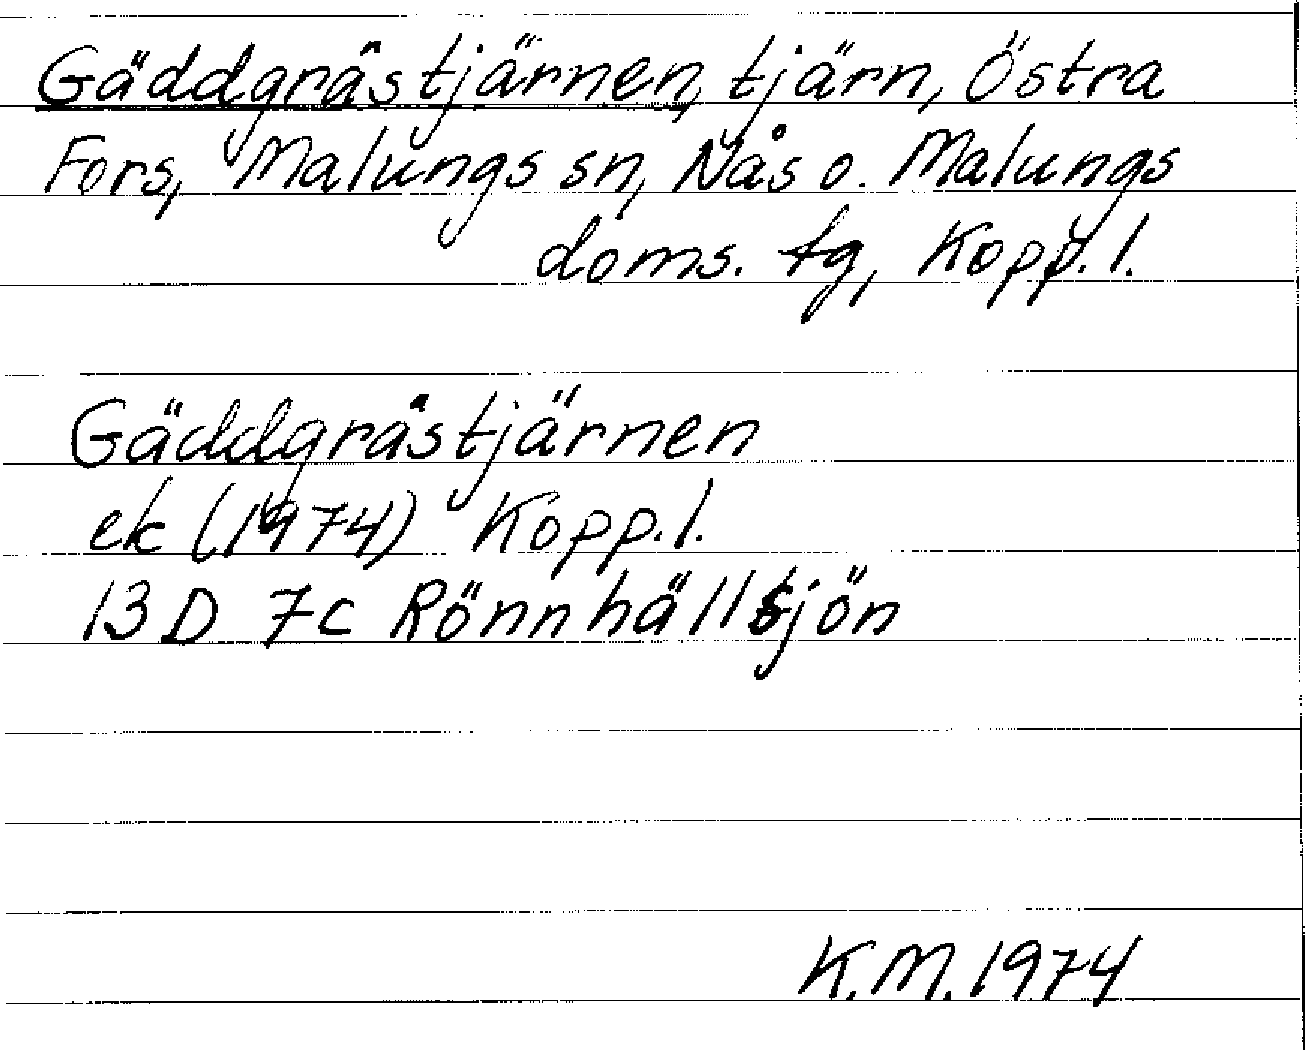 Gäddgråstjärnen, tjärn, Östra
Fors, Malungs sn, Nås o. Malungs
doms. tg, Kopp. l.
Gäddgråstjärnen
ek (1974) Kopp. l.
13D 7c Rönnhällsjön
K.M. 1974